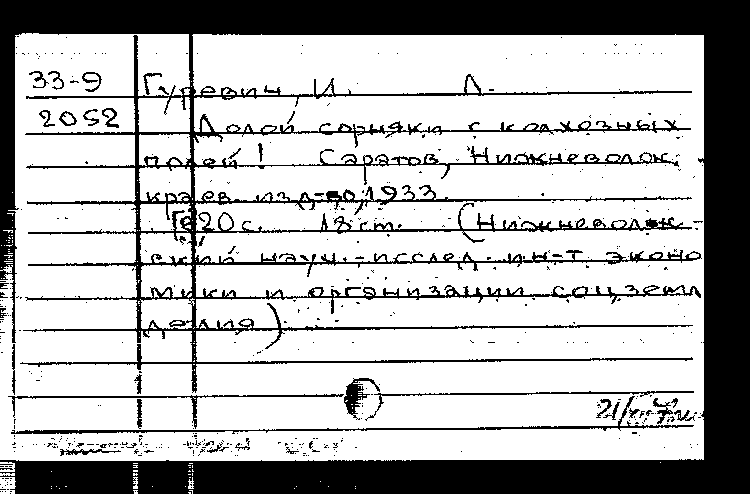 33-9 Гуревич, И. Л.
2052 Долой сорняки с колхозных
полей! Саратов, Нижневолж.
краев. изд-во, 1933.
20 с. 18 ст. (Нижневолж-
ский науч.-исслед. ин-т эконо
мики и организации соцземл
делия)
21/